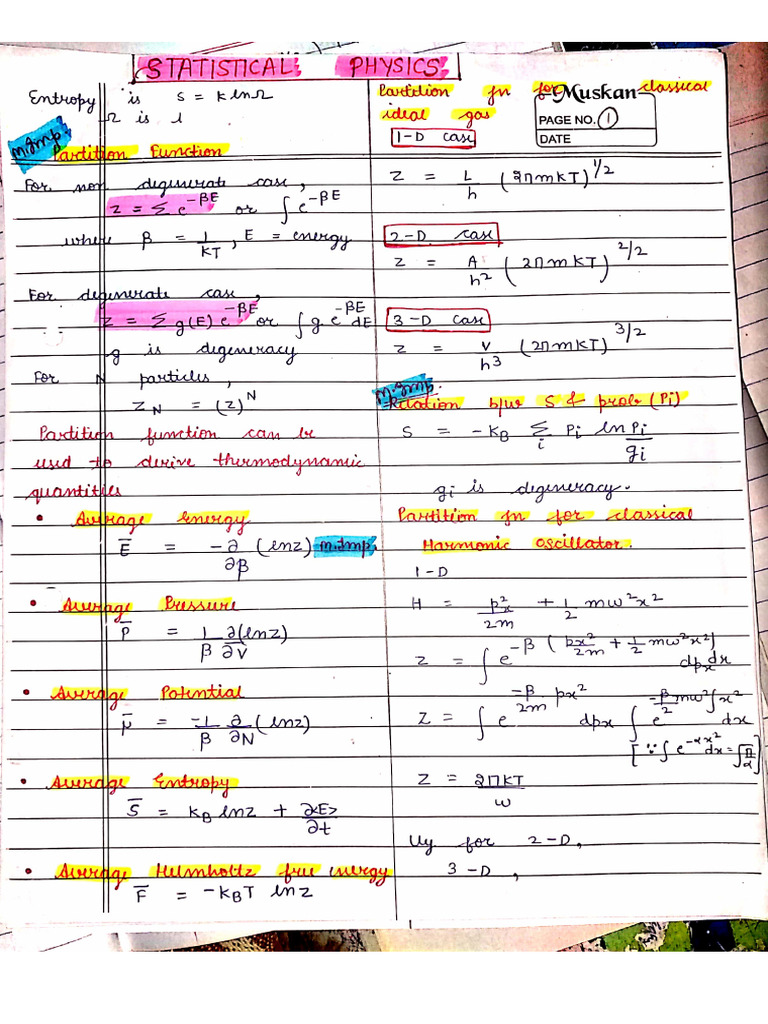 STATISTICAL PHYSICS
Muskan
PAGE NO. 1
DATE
Entropy is S = K lnΩ
Ω is
M.Imp.
Partition Function
For non degenerate case,
z = Σ e^{-βE} or ∫ e^{-βE}
where β = 1/KT, E = energy
For degenerate case,
z = Σ g(E) e^{-βE} or ∫ g e^{-βE} dE
g is degeneracy
For N particles,
Z_N = (Z)^N
Partition function can be
used to derive thermodynamic
quantities
• Average energy
E̅ = -∂/∂β (lnz) M.Imp.
• Average Pressure
P̅ = 1/β ∂(lnz)/∂v
• Average Potential
μ̅ = -1/β ∂/∂N (lnz)
• Average Entropy
S̅ = K_B lnz + ∂<E>/∂t
• Average Helmholtz free energy
F̅ = -K_BT lnz
Partition fn for classical
ideal gas
1-D case
Z = L/h (2πmKT)^{1/2}
2-D case
Z = A/h² (2πmKT)^{2/2}
3-D case
Z = V/h³ (2πmKT)^{3/2}
M.Imp.
Relation b/w S & prob (Pi)
S = -K_B Σ_i Pi ln Pi/gi
gi is degeneracy.
Partition fn for classical
Harmonic oscillator.
1-D
H = p_x²/2m + 1/2 mω²x²
Z = ∫ e^{-β (px²/2m + 1/2 mω²x²)} dpx dx
Z = ∫ e^{-β/2m px²} dpx ∫ e^{-β/2 mω² x²} dx
[∵ ∫ e^{-αx²} dx = √π/α]
Z = 2πKT/ω
lly for 2-D,
3-D,